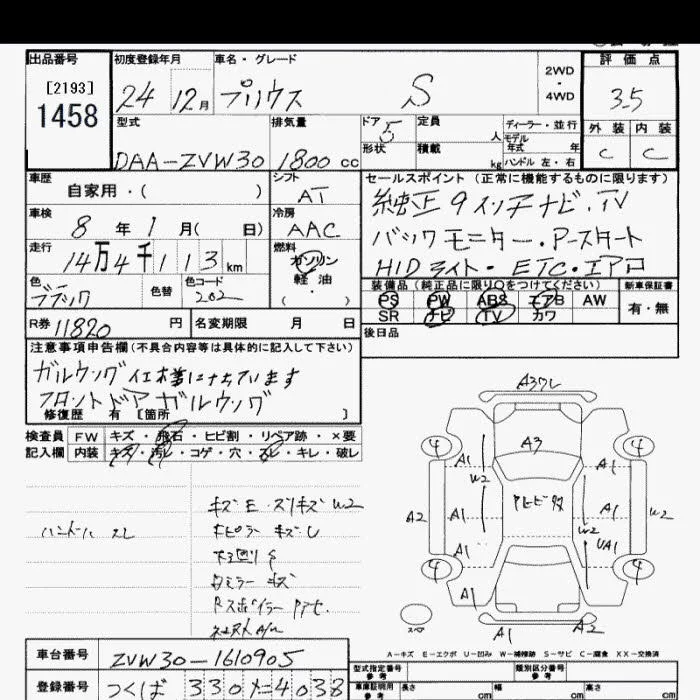 出品番号 初度登録年月 車名・グレード 2WD・4WD 評価点
[2193]
1458
24 12月 プリウス S 3.5
型式 排気量 ドア 5 定員 人 ディーラー・並行 外装 内装
形状 積載 kg モデル年式 年 ハンドル 左・右
DAA-ZVW30 1800 cc C C
車歴 シフト セールスポイント (正常に機能するものに限ります)
自家用・( ) AT 純正9インチナビ・TV
車検 冷房
8年1月( 日) AAC バックモニター・Pスタート
走行 燃料
14万4千113km ガソリン HIDライト・ETC・エアロ
軽油
色 色替 色コード ( ・ ) 装備品 (純正品に限り○をつけてください) 新車保証書
ブラック 202 PS PW ABS エアB AW 有・無
SR ナビ TV カワ
R券 11820 円 名変期限 月 日 後日品
注意事項申告欄 (不具合内容等は具体的に記入して下さい)
ガルウング仕様になっています
フロントドアガルウング
修復歴 有 [箇所 ]
検査員 FW キズ・飛石・ヒビ割・リペア跡・×要
記入欄 内装 キズ・汚レ・コゲ・穴・スレ・キレ・破レ
ハンドル スレ
キズE・スリキズW2
下廻りS
ミラー キズ
A3ワレ
A3
4 4
A1 A1
W2
A2 A1 A1 W2
W2
A1 UA1
4 4
A1
A1 A2
A-キズ E-エクボ U-凹み W-補修跡 S-サビ C-腐食 XX-交換済
車台番号 ZVW30-1610905 型式指定番号 参考 類別区分番号 参考
登録番号 つくば 330 イ=4038 車庫証明用 参考 長さ cm 幅 cm 高さ cm